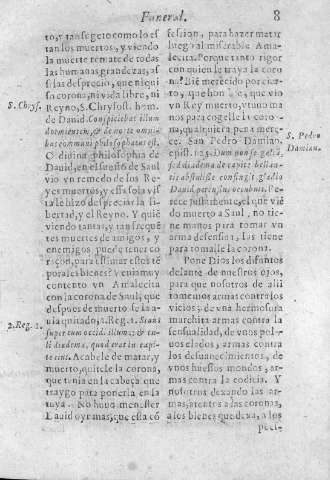 Funeral.
8
to, y tan segeto como lo es
tan los muertos, y viendo
la muerte remate de todas
las humanas grandezas, as
si las desprecio, que ni qui
sa corona, ni vida libre, ni
S. Chrys.
Reyno, S. Chrysost. hom.
de Dauid. Conspiciebat illum
dormientem, & de necis omni
bus communi philosophatus est.
O diuina philosophia de
Dauid, en el sueño de Saul
vio vn remedo de los Re
yes muertos, y essa sola vis
ta le hizo despreciar la li
bertad, y el Reyno. Y quiē
viendo tantas, y tan frequē
tes muertes de amigos, y
enemigos puede tener co
raçon, para estimar estos tē
porales bienes? Venia muy
contento vn Amalecita
con la corona de Saul, que
despues de muerto se la a-
uia quitado, 2. Reg. 1. Stans
2. Reg. 1.
super eum occidi illum: & tu-
li diadema, quod erat in capi-
te eius. Acabele de matar, y
muerto, quitele la corona,
que tenia en la cabeça que
traygo para ponerla en la
tuya. No huuo menester
Dauid oyr mas, que esta cō
fession, para hazer matar
luego al miserable Ama-
lecita. Porque tanto rigor
con quien le traya la coro
na? Biē merecido por cier
to, que hombre, que vio
vn Rey muerto, y tuuo ma
nos para cogelle la coro-
na, qualquiera pena mere-
ce. San Pedro Damiano,
S. Pedro
Damian.
epist.
Dauid percussus occubuit. Pe-
rece justamente, el que viē
do muerto a Saul, no tie-
ne manos para tomar vn
arma defensiua, las tiene
para tomalle la corona.
Pone Dios los difuntos
delante de nuestros ojos,
para que nosotros de alli
tomemos armas contra los
vicios; de vna hermosura
marchita armas contra la
sensualidad, de vnos pol-
uos elados, armas contra
los desuanecimientos, de
vnos huessos mondos, ar-
mas contra la codicia. Y
nosotros dexando las ar-
mas, atentos a las coronas,
a los bienes que dexa, a los